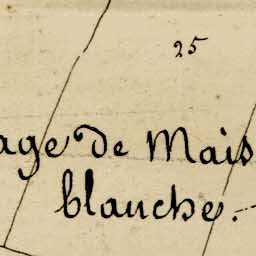 25
age de Mais
blanche.